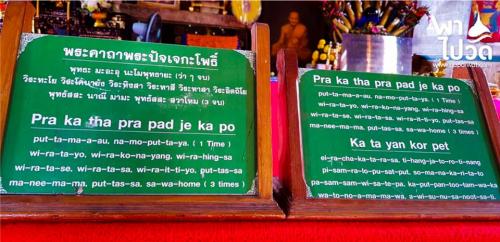 พาไปวัด
พระคาถาพระปัจเจกะโพธิ์
พุทธะ มะอะอุ นะโมพุทธายะ (ว่า ๆ จบ)
วิระทะโย วิระโคนายัง วิระหิงสา วิระทาสี วิระทาสา วิระอิตถิโย
พุทธัสสะ มานีมามะ พุทธัสสะ สวาโหม (3 จบ)
Pra ka tha pra pad je ka po
put-ta-ma-a-au, na-mo-put-ta-ya. ( 1 Time )
wi-ra-ta-yo, wi-ra-ko-na-yang, wi-ra-hing-sa
wi-ra-ta-se, wi-ra-ta-sa, wi-ra-it-ti-yo, put-tas-sa
ma-nee-ma-ma, put-tas-sa, sa-wa-home ( 3 times )
Pra ka tha pra pad je ka po
put-ta-ma-a-au, na-mo-put-ta-ya. ( 1 Time )
wi-ra-ta-yo, wi-ra-ko-na-yang, wi-ra-hing-sa
wi-ra-ta-se, wi-ra-ta-sa, wi-ra-it-ti-yo, put-tas-sa
ma-nee-ma-ma, put-tas-sa, sa-wa-home ( 3 times )
Ka ta yan kor pet
ei-ra-cha-ka-ta-ra-sa, ti-hang-ja-to-ro-ti-nang
pi-sam-ra-lo-pu-sat-put, so-ma-na-ka-ri-ta-to
pa-sam-sam-wi-sa-te-pa, ka-put-pan-too-tam-wa-ka
wa-to-no-a-ma-ma-wa, a-wi-su-nu-sa-noot-sa-ti.